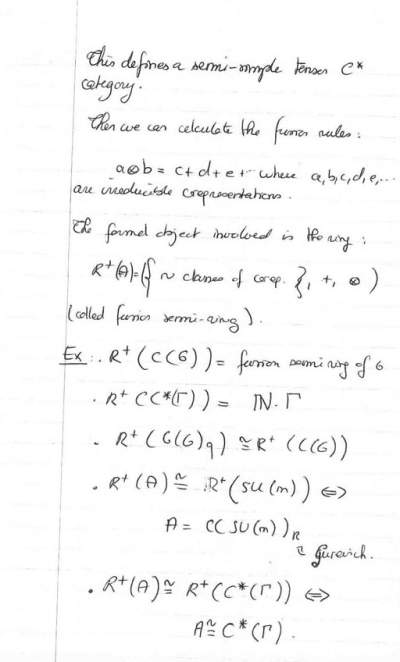 This defines a semi-simple tensor C*
category.
Then we can calculate the fusion rules:
a⊗b = c+d+e+.. where a,b,c,d,e,...
are irreducible corepresentations.
The formal object involved is the ring:
R⁺(A)=({~ classes of corep. }, +, ⊗)
(called fusion semi-ring).
Ex: . R⁺(C(G)) = fusion semiring of G
. R⁺(C*(Γ)) = ℕ·Γ
. R⁺(C(G)q) ≅ R⁺(C(G))
. R⁺(A) ≅ R⁺(SU(n)) ⇔
A = C(SU(n))R
Gurevich.
. R⁺(A) ≅ R⁺(C*(Γ)) ⇔
A ≅ C*(Γ).